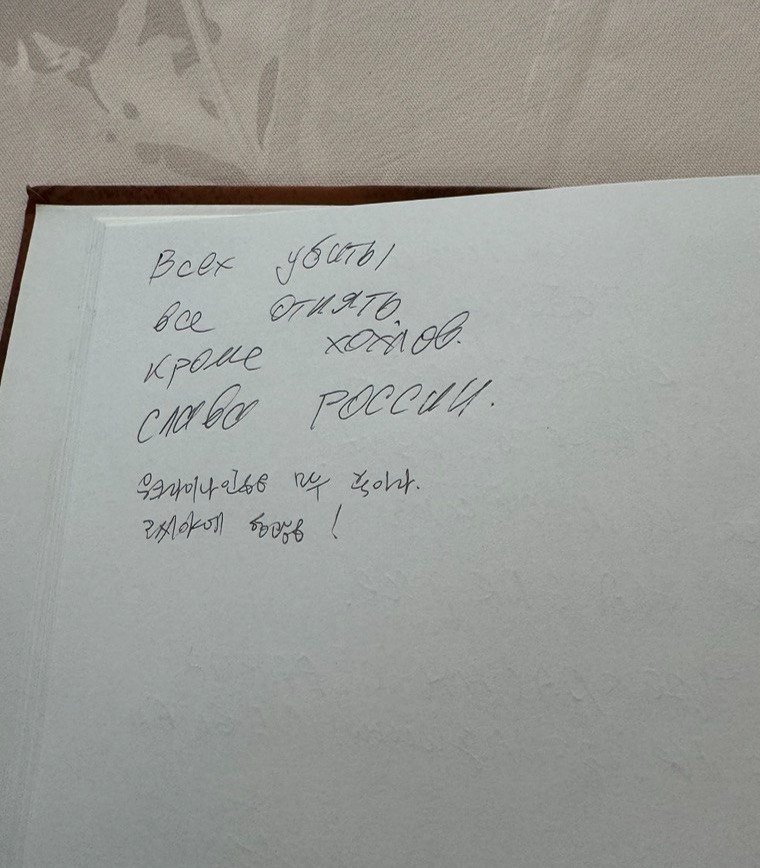 Всех убиты
все отнять.
кроме хохлов.
слава россии.
우크라이나인을 모두 죽이라.
로씨야에 영광을!